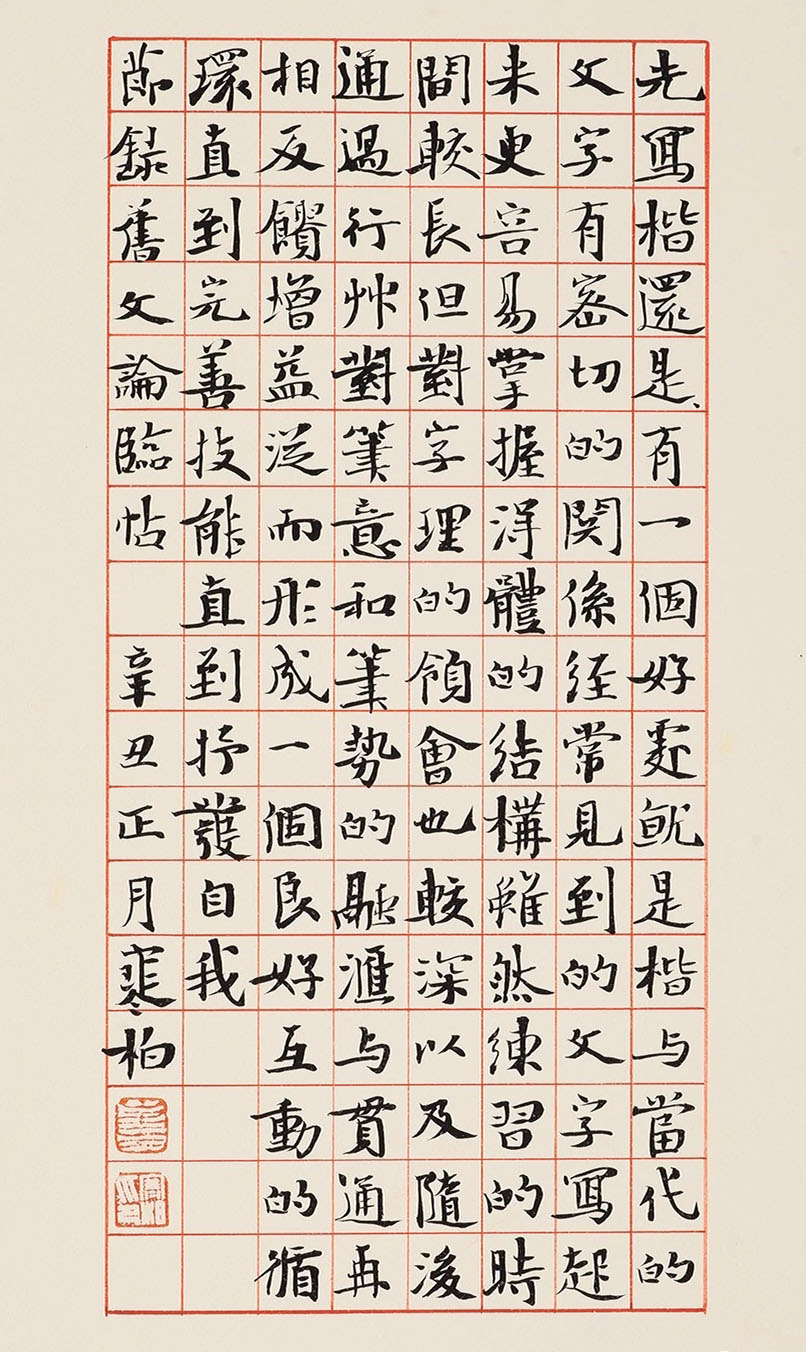 先寫楷還是有一個好處就是楷与當代的
文字有密切的関係経常見到的文字寫起
来更容易掌握得體的結構雖然練習的時
間較長但對字理的領會也較深以及隨後
通過行艸對筆意和筆勢的融滙与貫通再
相反饋增益從而形成一個良好互動的循
環直到完善技能直到抒發自我
節錄舊文論臨帖 辛丑正月寒柏